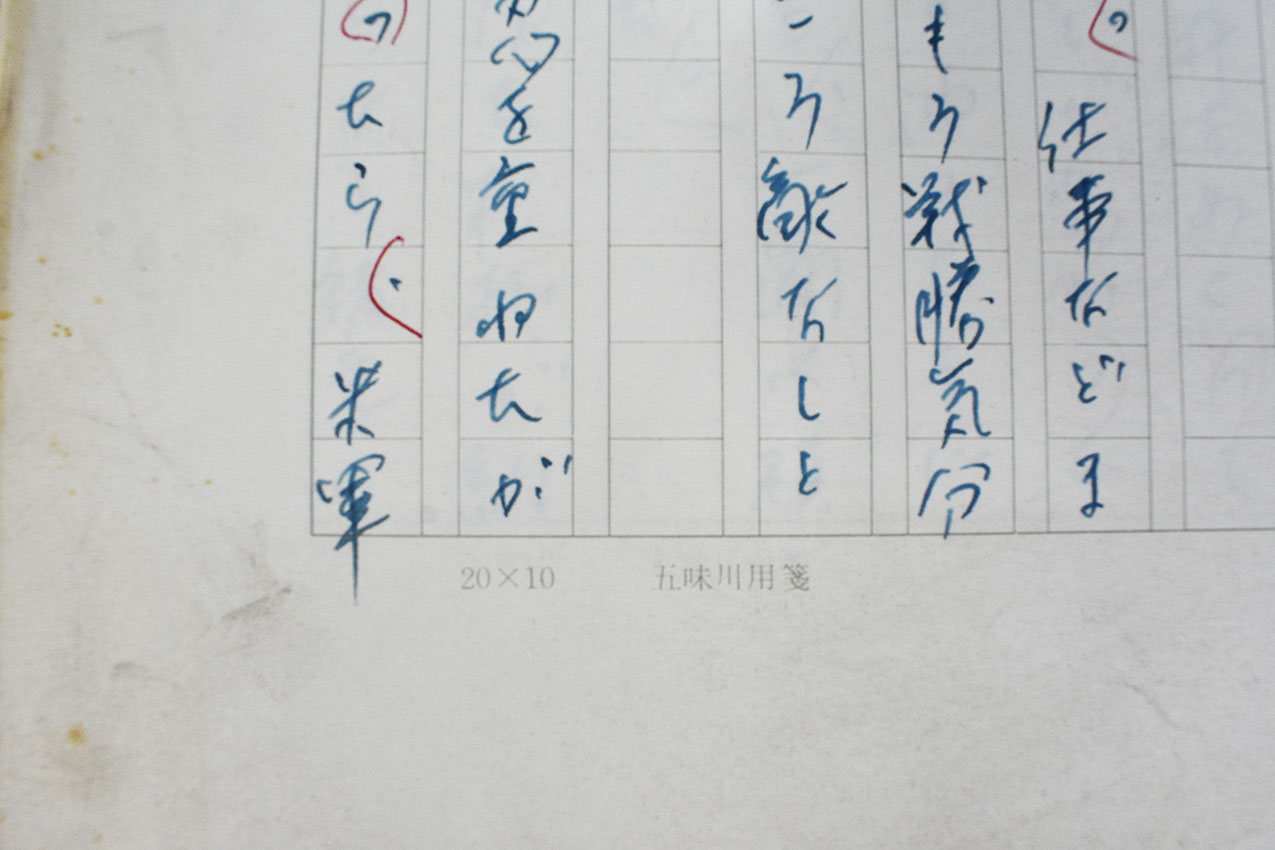 の仕事などま
もう戦勝気分
ころ敵なしと
を重ねたが
のたら、米軍
20×10 五味川用箋